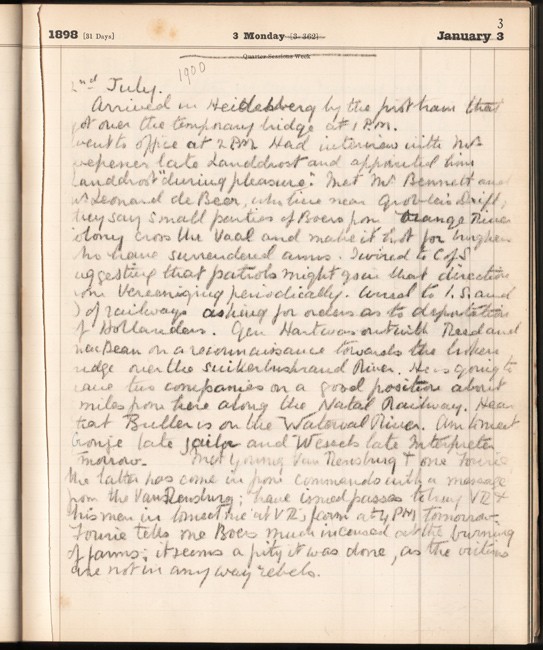 3
1898 [31 Days] 3 Monday (3-362) January 3
Quarter Sessions Week
1900
2nd July.
Arrived in Heidelberg by the first train that
got over the temporary bridge at 1 P.M.
went to office at 2 PM Had interview with Mr
late Landdrost and appointed him
Landdrost "during pleasure". Met Mr Bennett and
Leonard de Beer, who live near Grobler's Drift,
they say small parties of Boers from Orange River
Colony cross the Vaal and make it hot for burghers
who have surrendered arms. I wired to CofS
suggesting that patrols might go in that direction
from Vereeniging periodically. Wired to I.S. and
D of railways asking for orders as to deportation
of Hollanders. Gen Hart was out with Reed and
on a reconnaissance towards the broken
bridge over the Suikerbushrand River. He is going to
have two companies on a good position about
miles from here along the Natal Railway. Hear
that Buller is on the Waterval River. Am to meet
late jailor and Wessels late Interpreter
Tmorrow. Met Young Van Rensburg & one Fourie
the latter has come in from commando with a message
from the Van Rensburg; have issued passes to bring VR &
his men in to meet me at VR's farm at 4 PM tomorrow.
Fourie tells me Boers much incensed at the burning
of farms; it seems a pity it was done, as the victims
are not in any way rebels.